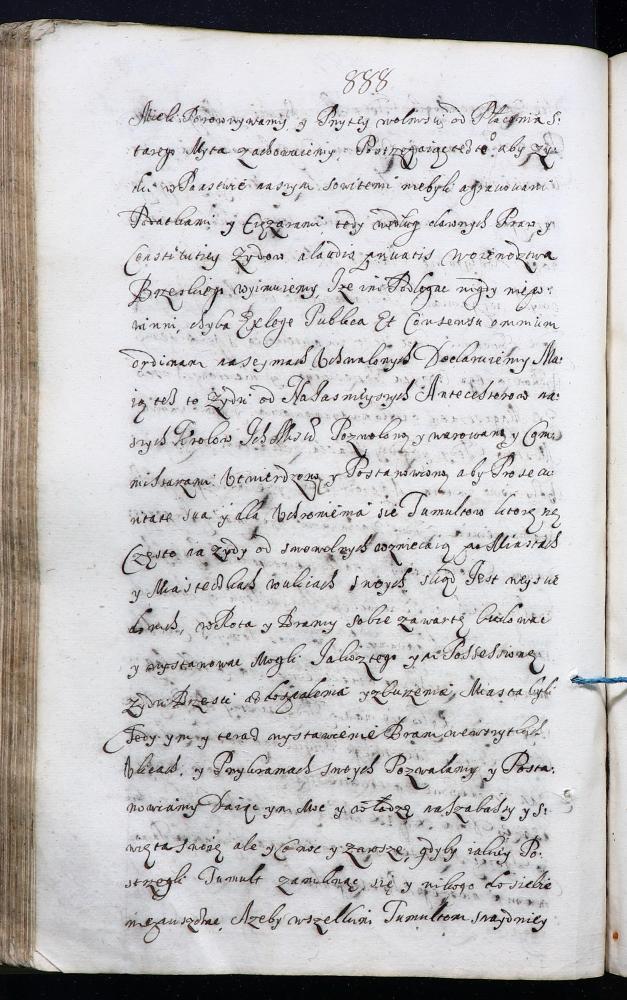 888
Mieli Porownywamy y Przytey wolnosci od Płacenia S:
tarego Myta zachowuiemy. Postrzegaiąc tedy aby Zy:
dzi w Panstwie naszym sowitemi niebyli agrawowani
Podatkami y Cięzarami tedy według dawnych Praw y
Constitutiey Zydow a laudis privatis Woiewodztwa
Brzeskiego wyimuiemy, Iże im Podlegac nigdy niepo:
winni, chyba Ex lege Publica Et Consensu omnium
ordinum na seymach Uchwalonych Declaruiemy Ma:
ią tesz to Zydzi od Naiasnieyszych Antecessorow na:
szych Krolow Ich Msciow Pozwolono y warowano y Com:
missarzami Utwierdzono y Postanowiono, aby Pro secu:
ritate sua y dla Uchronienia się Tumultow ktore się
Często na Zydy od swowolnych wzniecaią po Miastach
y Miasteczkach w ulicach swoych skąd Iest weyscie
do nich, wrota y Bramy sobie zawarte budowac
y wystanowic Mogli Iakosz tego y in Possessione
Zydzi Brzesci do spalenia y zburzenia Miasta byli
Tedy ym y teraz wystawienie Bram we wszytkich
Ulicach, y Przykramach swoych Pozwalamy y Posta:
nowiamy Daiąc ym Moc y władzę na szabasy y S:
więta swoie ale y Co noc y zawsze, gdyby iakiey Po:
strzegli Tumult zamknąc się y nikogo do siebie
niepuszczac, Azeby wszelkim Tumultom snadniey